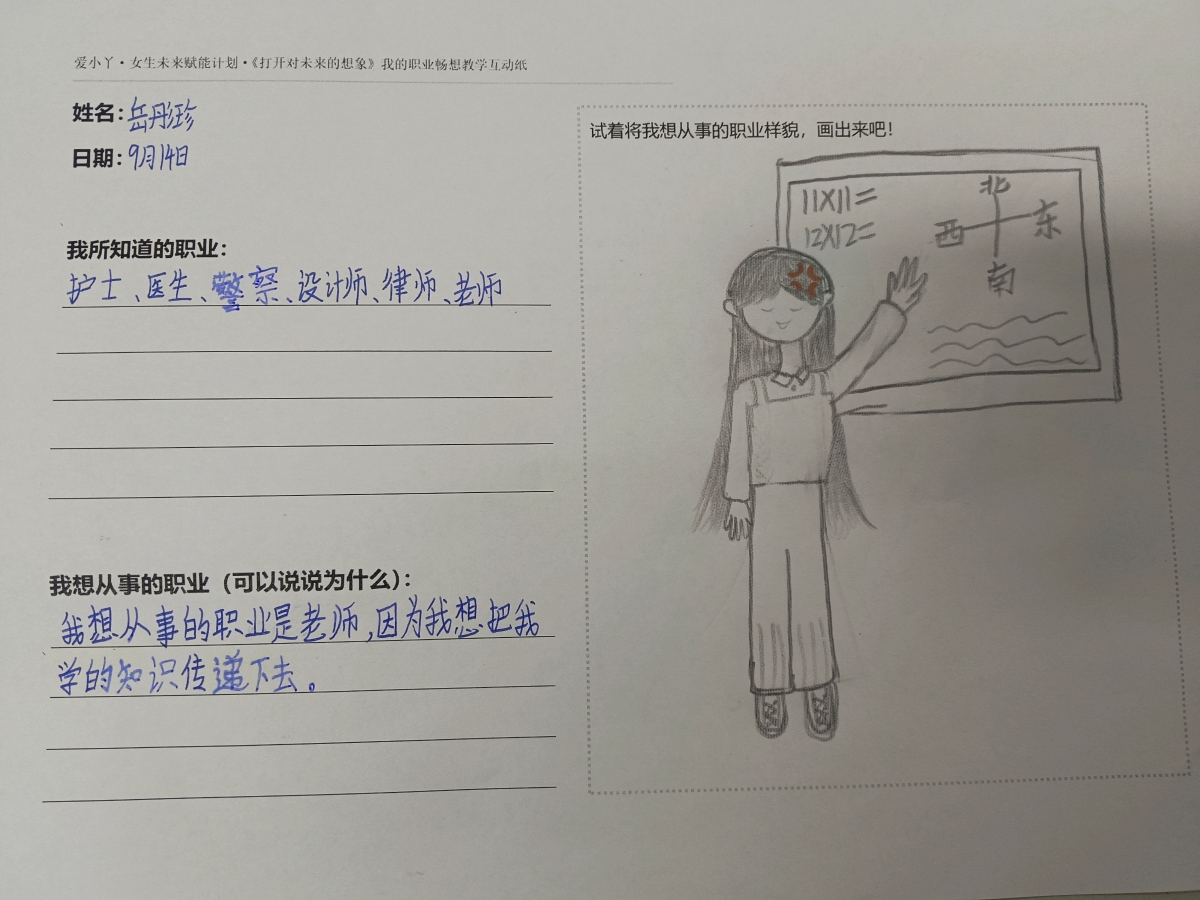 爱小丫·女生未来赋能计划·《打开对未来的想象》我的职业畅想教学互动纸
姓名：岳彤珍
日期：9月14日
我所知道的职业：
护士、医生、警察、设计师、律师、老师
我想从事的职业（可以说说为什么）：
我想从事的职业是老师,因为我想把我
学的知识传递下去。
试着将我想从事的职业样貌，画出来吧！
11X11=
12X12=
北
西 东
南